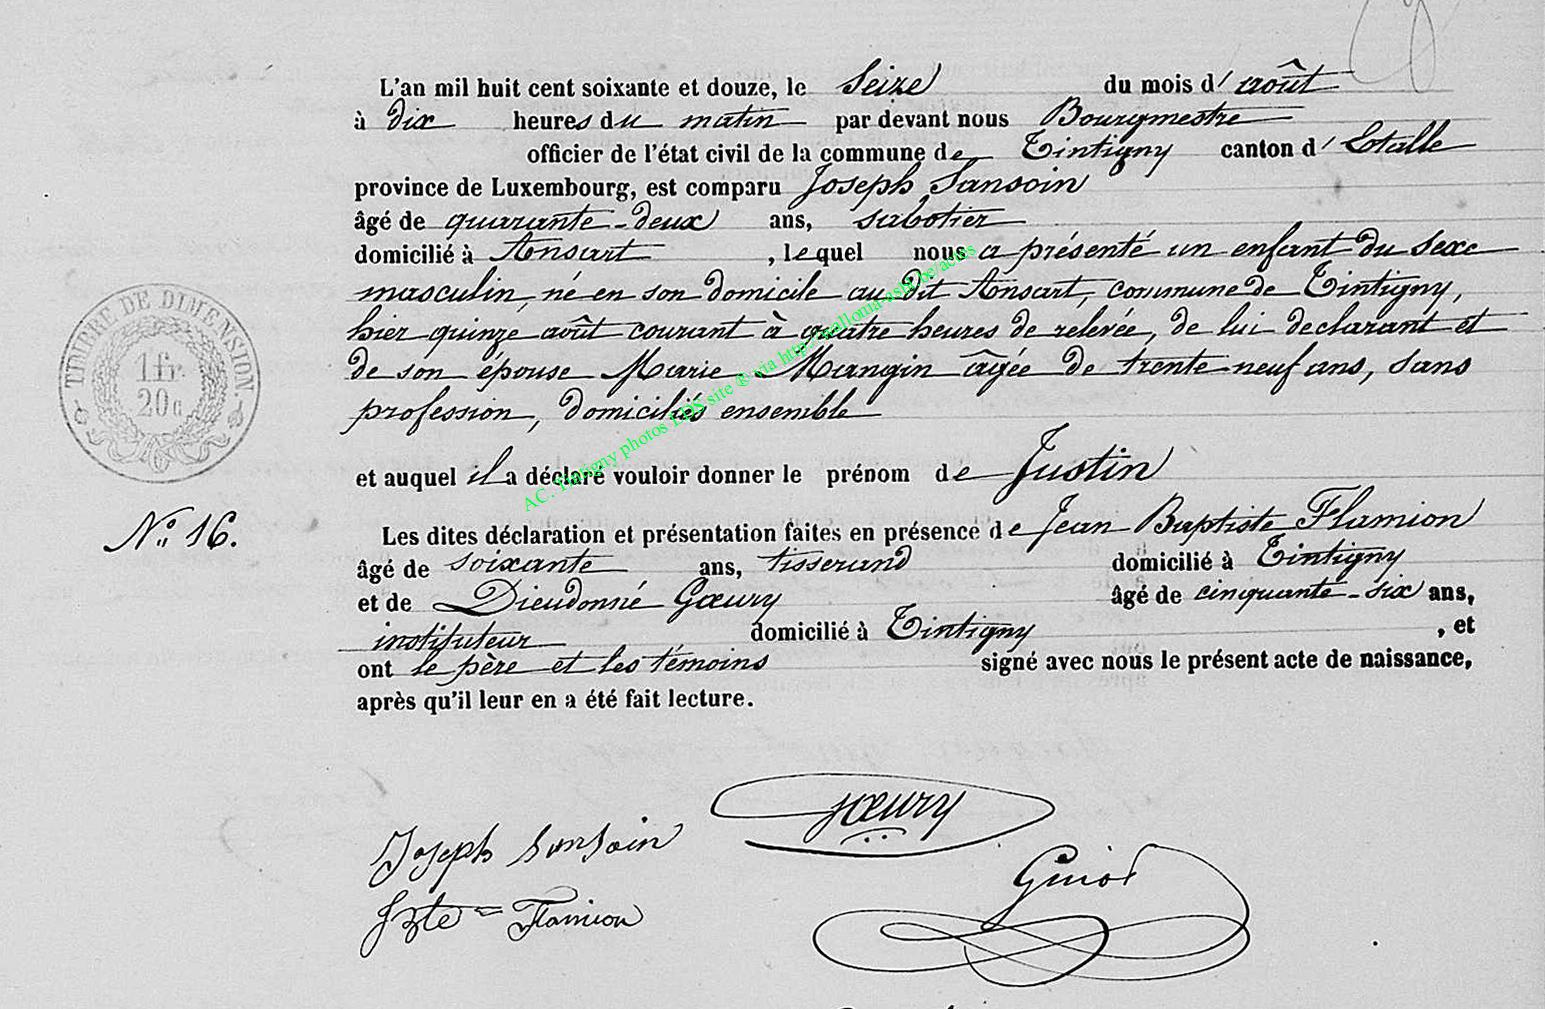 L'an mil huit cent soixante et douze, le Seize du mois d' août
à dix heures du matin par devant nous Bourgmestre
officier de l'état civil de la commune de Tintigny canton d' Etalle
province de Luxembourg, est comparu Joseph Sansoin
âgé de quarante-deux ans, sabotier
domicilié à Ansart, lequel nous a présenté un enfant du sexe
masculin, né en son domicile au dit Ansart, commune de Tintigny,
hier quinze août courant à quatre heures de relevée, de lui déclarant et
de son épouse Marie Mangin âgée de trente-neuf ans, sans
profession, domiciliés ensemble
et auquel il a déclaré vouloir donner le prénom de Justin
Les dites déclaration et présentation faites en présence de Jean Baptiste Flamion
âgé de soixante ans, tisserand domicilié à Tintigny
et de Dieudonné Gœury âgé de cinquante-six ans,
instituteur domicilié à Tintigny, et
ont le père et les témoins signé avec nous le présent acte de naissance,
après qu'il leur en a été fait lecture.
TIMBRE DE DIMENSION.
1 fr.
20 c
N° 16.
AC. Tintigny photos LDS site ® via http://wallonia-asbl.be/actes
Gœury
Joseph Sansoin
Guiot
JBte = Flamion